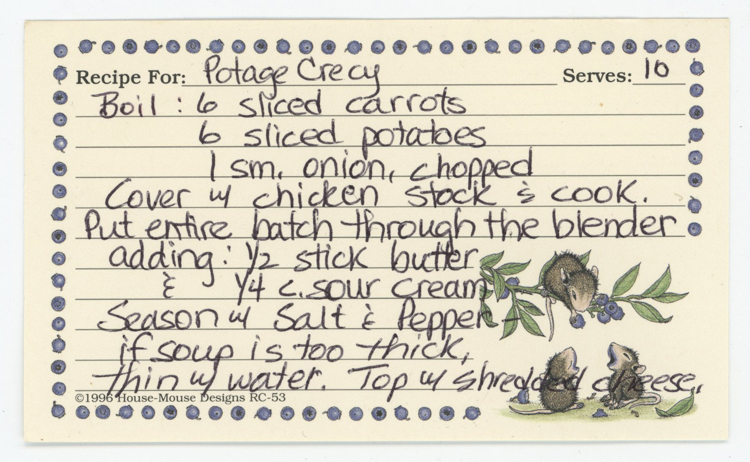 Recipe For: Potage Crecy Serves: 10
Boil : 6 sliced carrots
6 sliced potatoes
1 sm. onion, chopped
Cover w/ chicken stock & cook.
Put entire batch through the blender
adding: 1/2 stick butter
& 1/4 c. sour cream
Season w/ Salt & Pepper -
if soup is too thick,
thin w/ water. Top w/ shredded cheese.
©1996 House-Mouse Designs RC-53